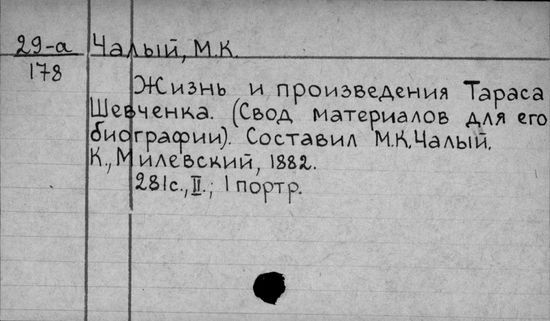 29-а Чалый, М.К.
178
Жизнь и произведения Тараса
Шевченка. (Свод материалов для его
биографии). Составил М.К.Чалый.
К., Милевский, 1882.
281с., II.; 1 портр.